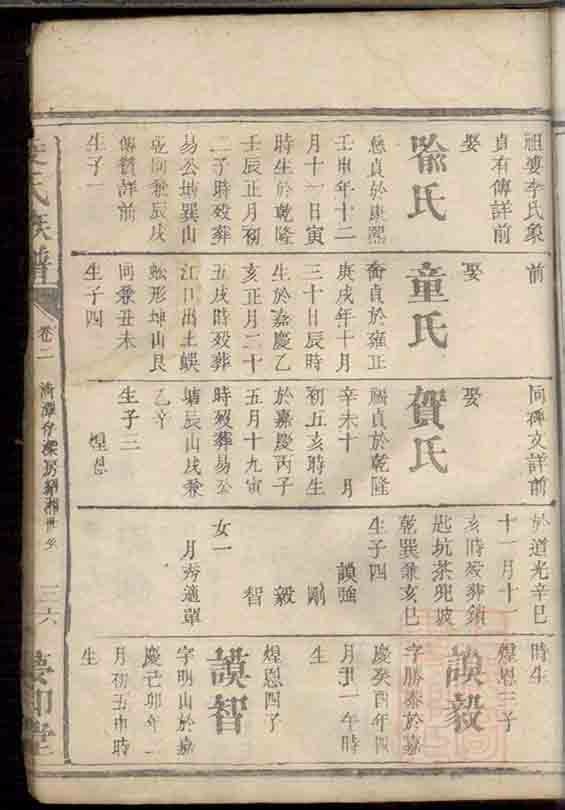 祖妻李氏象
貞有傳詳前
娶
喩氏
懿貞於康熙
壬申年十二
月十一日寅
時生於乾隆
壬辰正月初
二子時歿葬
易公塘巽山
乾向兼辰戌
傳贊詳前
生子一
前
娶
童氏
貞於雍正
庚戌年十月
三十日辰時
生於嘉慶乙
亥正月二十
五戌時歿葬
江口出土蜈
蚣形坤山艮
向兼丑未
生子四
同碑文詳前
娶
賀氏
貞於乾隆
辛未十月
初五亥時生
於嘉慶丙子
五月十九寅
時歿葬易公
塘辰山戌兼
乙辛
生子三
煌恩
於道光辛巳
十一月十一
亥時歿葬鎖
匙坑茶兜坡
乾巽兼亥巳
生子四
謨強
剛
毅
智
女一
月秀適譚
時生
煌恩三子
謨毅
字勝泰於嘉
慶癸酉年四
月十一午時
生
煌恩四子
謨智
字明山於嘉
慶己卯年
月初五申時
生
氏族譜
卷二
三六